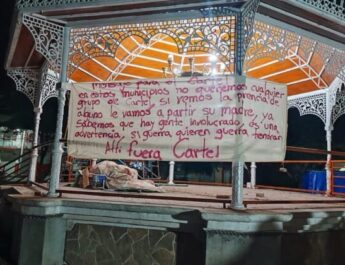 Mensaje para el Cartel
en estos municipios no queremos cualquier
grupo de Cartel, si vemos la presencia de
alguno le vamos a partir su madre, ya
sabemos que hay gente involucrada, es una
advertencia, si guerra quieren guerra tendran
Att: fuera Cartel